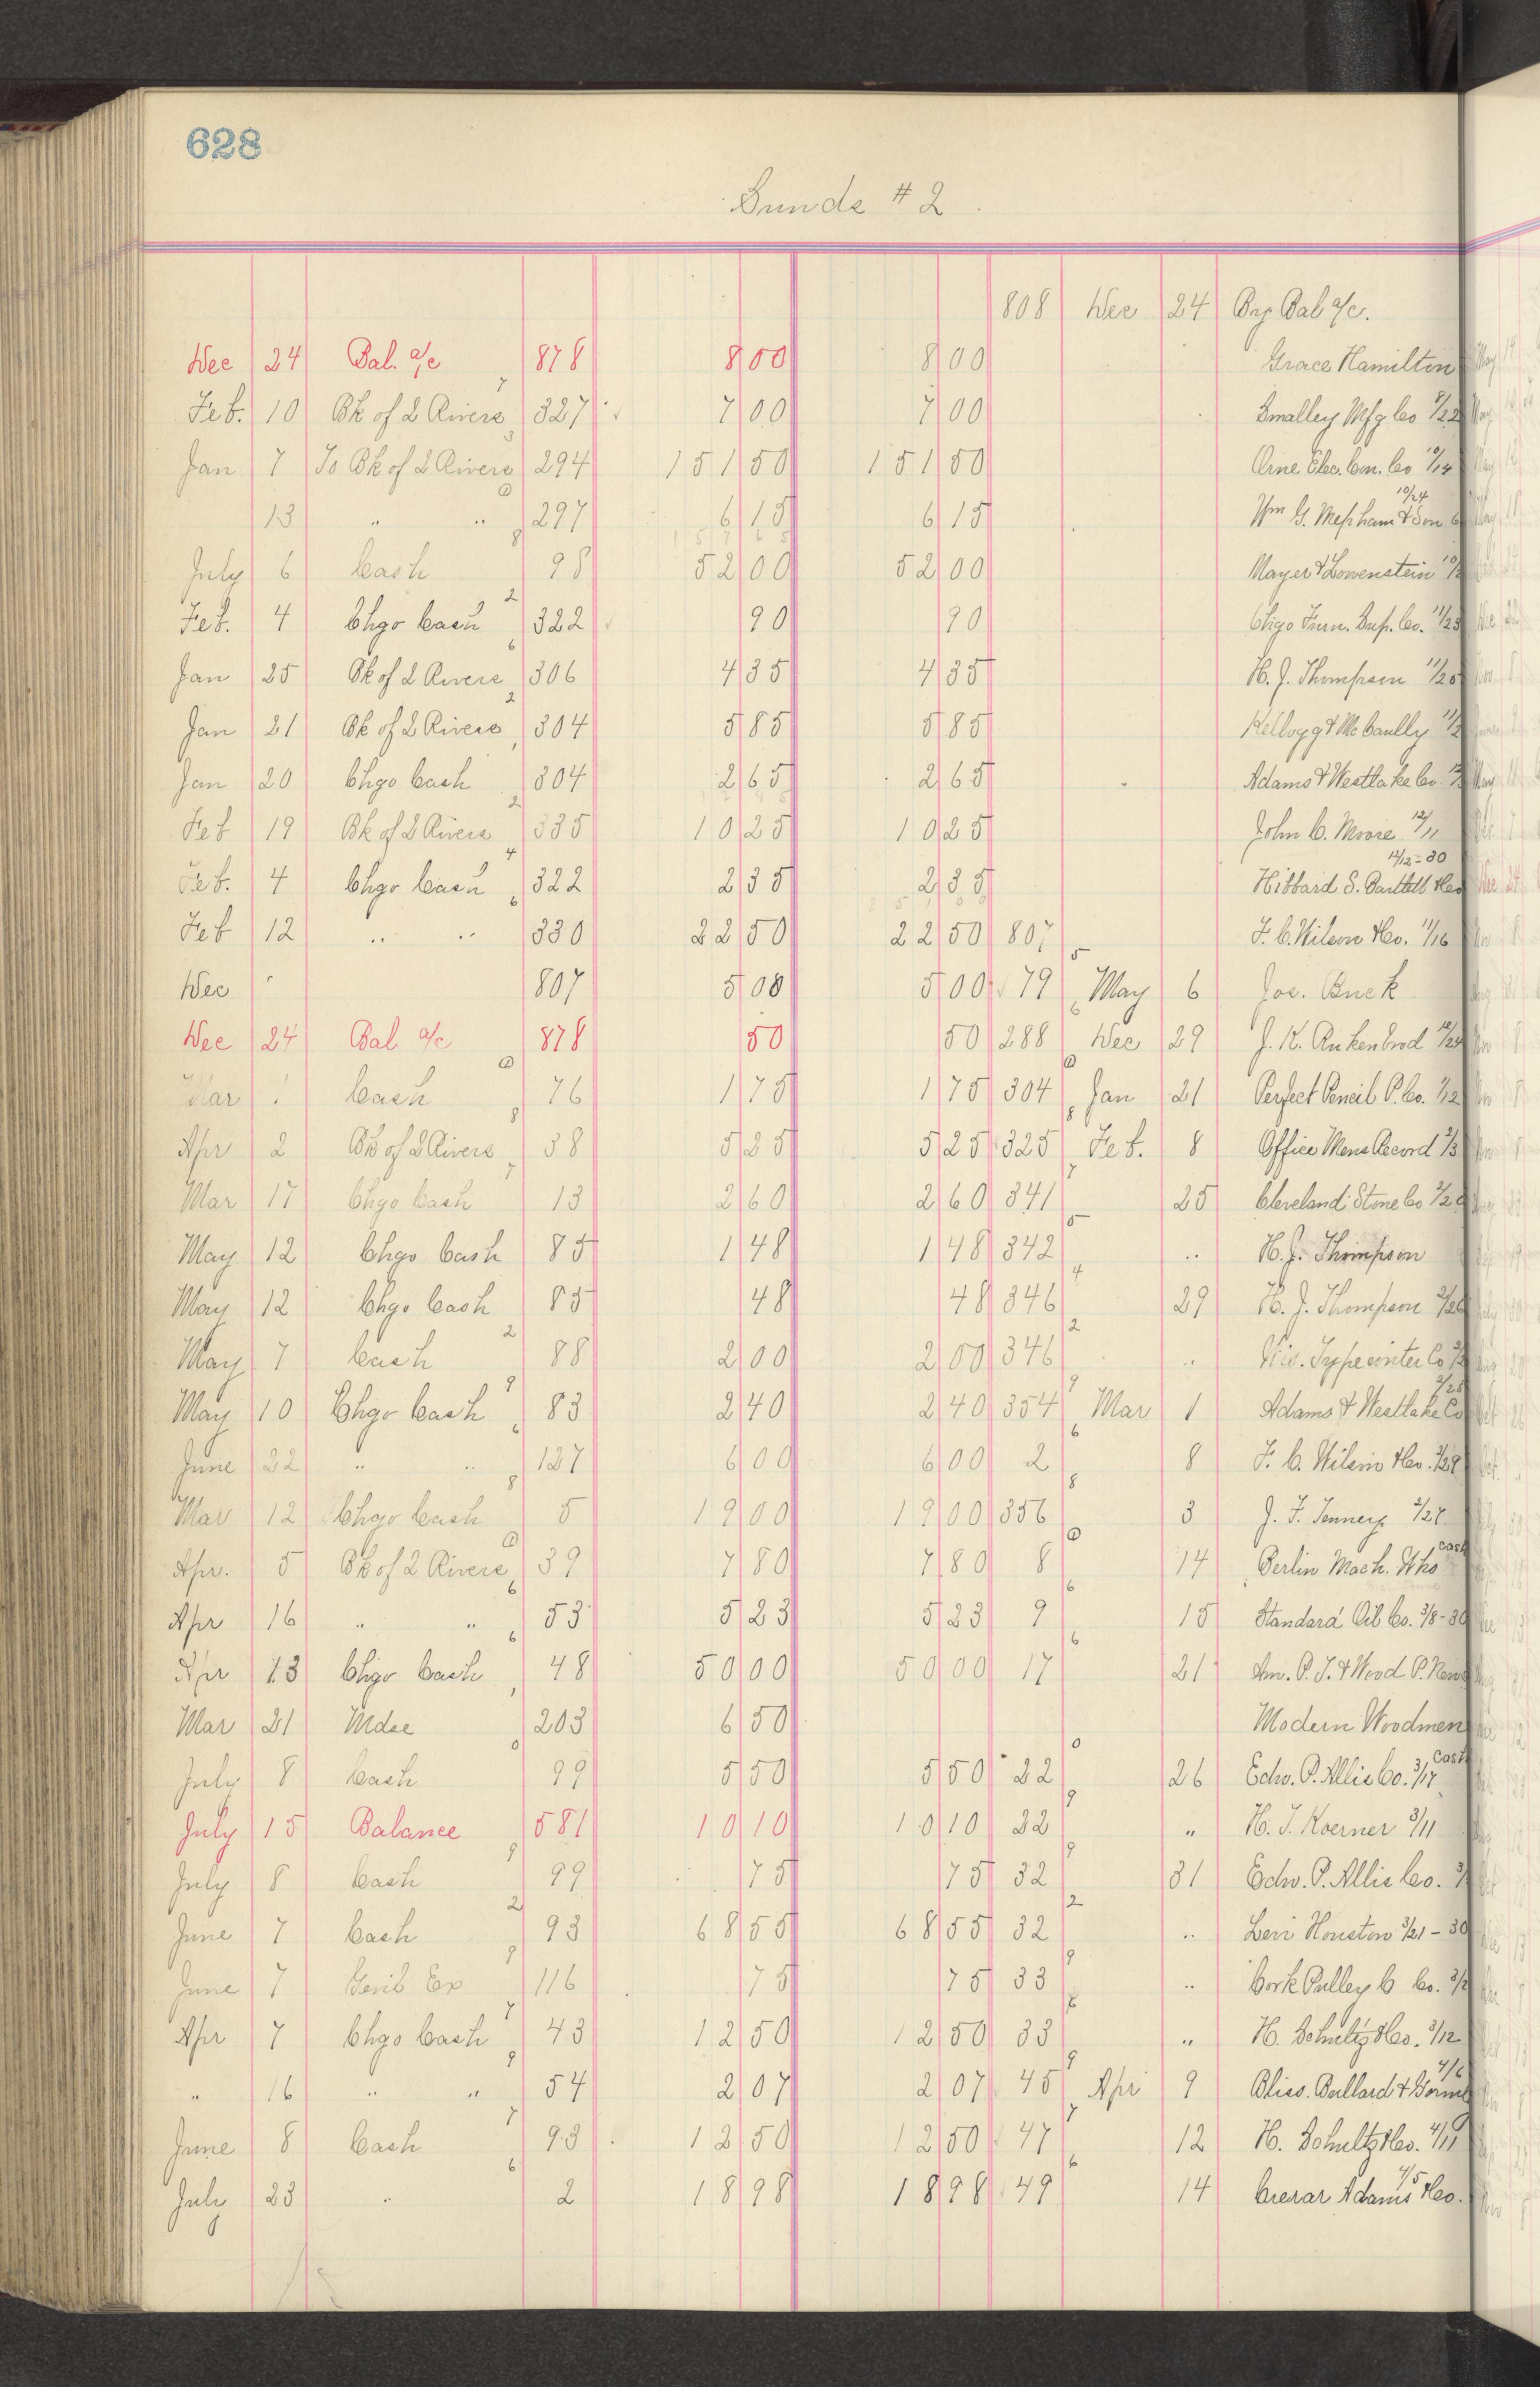 628
Sunds # 2
808 Dec 24 By Bal a/c.
Dec 24 Bal. a/c 878 8 00 8 00 Grace Hamilton
Feb. 10 Bk of 2 Rivers 7 327 7 00 7 00 Smalley Mfg Co
Jan 7 To Bk of 2 Rivers 3 294 151 50 151 50 Arne Elec. Con. Co 10/14
13 " " 297 6 15 6 15 Wm G. Mepham & Son 10/24
July 6 Cash 8 98 52 00 52 00 Mayer & Lowenstein
Feb. 4 Chgo Cash 2 322 90 90 Chgo Furn. Sup. Co. 11/23
Jan 25 Bk of 2 Rivers 6 306 4 35 4 35 H. J. Thompson 11/20
Jan 21 Bk of 2 Rivers 2 304 5 85 5 85 Kellogg & McCaully
Jan 20 Chgo Cash 304 2 65 2 65 Adams & Westlake Co
Feb 19 Bk of 2 Rivers 2 335 10 25 10 25 John C. Moore 12/11
Feb. 4 Chgo Cash 4 322 2 35 2 35 Hibbard S. Bartlett &Co 12/12-30
Feb 12 " " 6 330 22 50 22 50 807 F. C. Wilson &Co. 11/16
Dec 807 5 00 5 00 79 5 May 6 Jos. Buck
Dec 24 Bal a/c 878 50 50 288 6 Dec 29 J. K. Ankenbrod 12/24
Mar 1 Cash 76 1 75 1 75 304 Jan 21 Perfect Pencil P. Co. 1/12
Apr 2 Bk of 2 Rivers 8 38 5 25 5 25 325 8 Feb. 8 Office Mens Record 2/3
Mar 17 Chgo Cash 7 13 2 60 2 60 341 7 25 Cleveland Stone Co
May 12 Chgo Cash 85 1 48 1 48 342 5 " H. J. Thompson
May 12 Chgo Cash 85 48 48 346 4 29 H. J. Thompson 2/26
May 7 Cash 2 88 2 00 2 00 346 2 " Wis. Typewriter Co
May 10 Chgo Cash 9 83 2 40 2 40 354 9 Mar 1 Adams & Westlake Co 2/25
June 22 " " 6 127 6 00 6 00 2 6 8 F. C. Wilson &Co. 2/29
Mar 12 Chgo Cash 8 5 19 00 19 00 356 8 3 J. F. Tenney 2/27
Apr. 5 Bk of 2 Rivers 39 7 80 7 80 8 14 Berlin Mach. Wks Cash
Apr 16 " " 6 53 5 23 5 23 9 6 15 Standard Oil Co. 3/8-30
Apr 13 Chgo Cash 6 48 50 00 50 00 17 6 21 Am. P. J. & Wood P. News
Mar 21 Mdse 203 6 50 Modern Woodmen
July 8 Cash 0 99 5 50 5 50 22 0 26 Edw. P. Allis Co. 3/17 Cash
July 15 Balance 581 10 10 10 10 22 9 " H. J. Koerner 3/11
July 8 Cash 9 99 75 75 32 9 31 Edw. P. Allis Co.
June 7 Cash 2 93 68 55 68 55 32 2 " Levi Houston 3/21-30
June 7 Genl Ex 9 116 75 75 33 9 " Cork Pulley C Co.
Apr 7 Chgo Cash 7 43 12 50 12 50 33 " H. Schultz &Co. 3/12
" 16 " " 9 54 2 07 2 07 45 9 Apr 9 Bliss. Bullard & Gorml 4/6
June 8 Cash 7 93 12 50 12 50 47 7 12 H. Schultz &Co. 4/11
July 23 " 6 2 18 98 18 98 49 6 14 Crerar Adams &Co. 4/5